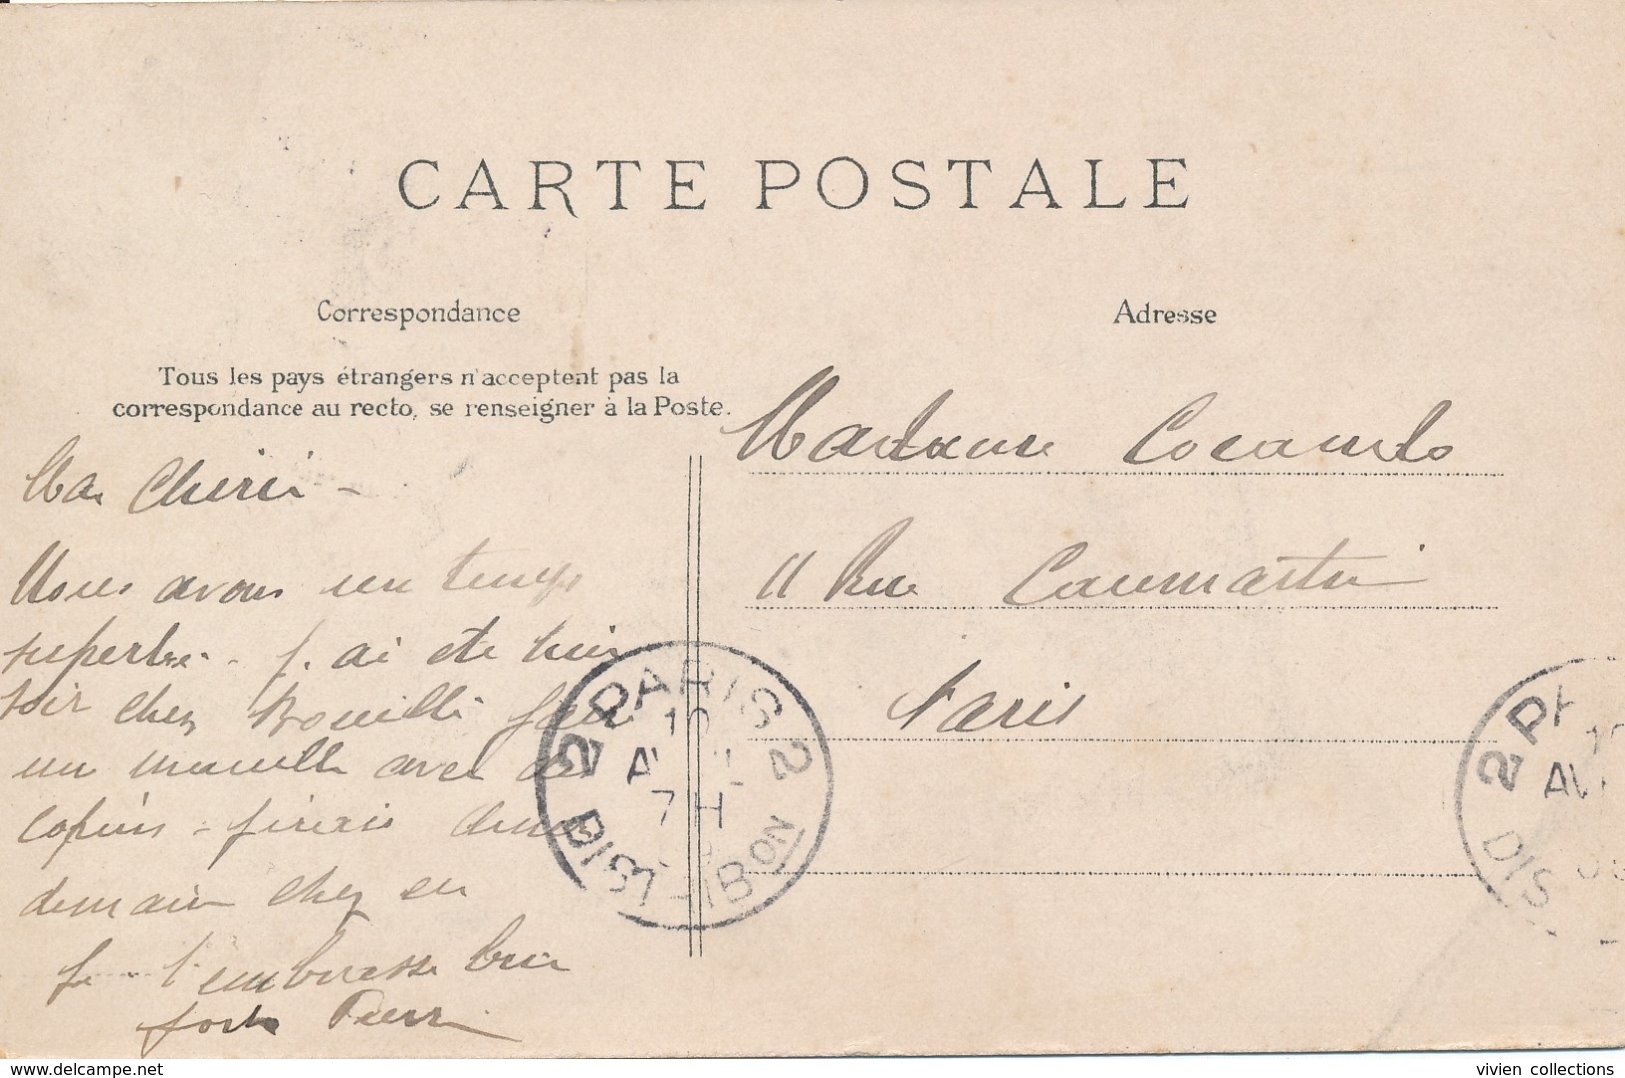 CARTE POSTALE
Correspondance
Tous les pays étrangers n'acceptent pas la
correspondance au recto, se renseigner à la Poste.
Adresse
Madame
11 Rue Caumartin
Paris
Ma Chérie -
Nous avons un temps
superbe - j'ai ete hier
soir chez faire
un manille avec des
copins - j'irais
demain chez eu
Je t'embrasse bien
fort Pierre
2 PARIS 2
AV
7 H
DISTRIBON
2 PA
AV
DIS
www.delcampe.net
vivien collections